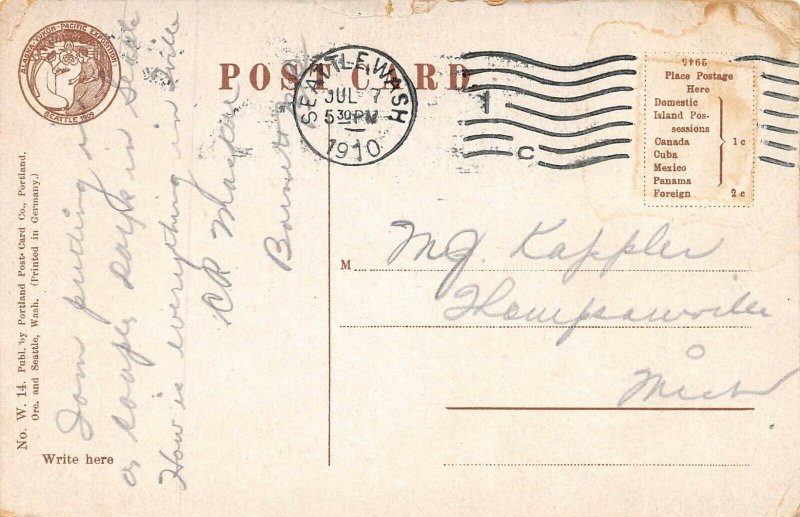 ALASKA·YUKON·PACIFIC EXPOSITION
SEATTLE 1909
POST CARD
SEATTLE, WASH
JUL 7
5 30 PM
1910
1
C
2945
Place Postage
Here
Domestic
Island Pos-
sessions
Canada
Cuba
Mexico
Panama
1 c
Foreign 2 c
No. W. 14. Publ. by Portland Post Card Co., Portland,
Ore. and Seattle, Wash. (Printed in Germany.)
Write here
I am putting in
a couple days in Seattle
How is everything in T'ville
M
Kappler
Thompsonville
Mich